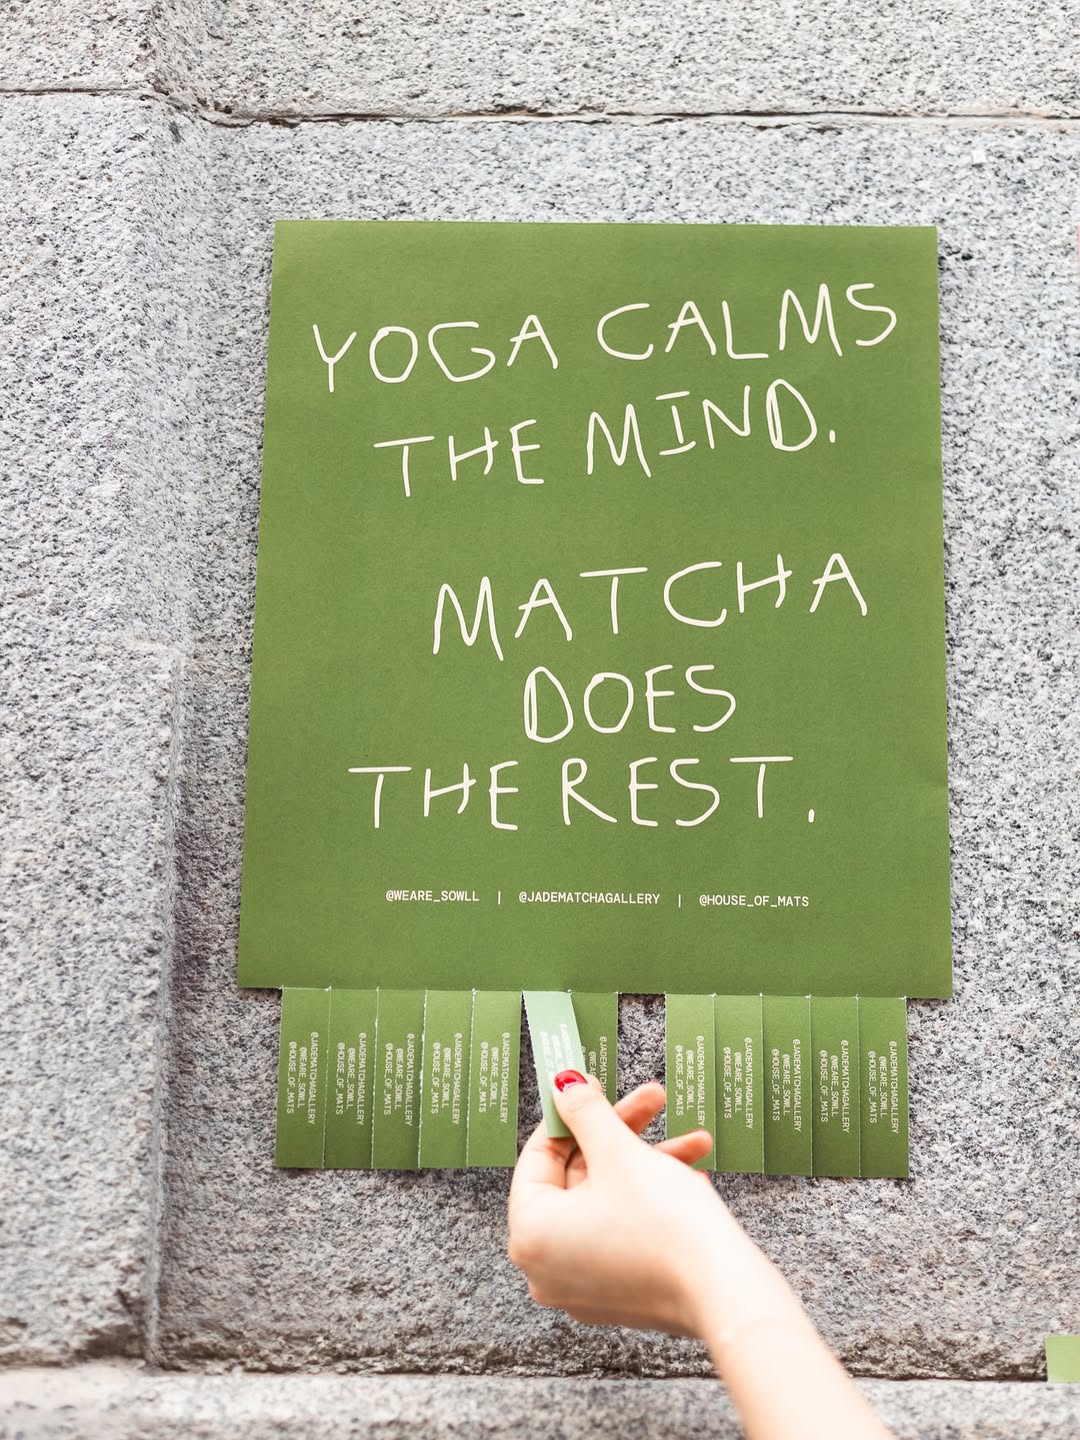 YOGA CALMS
THE MIND.
MATCHA
DOES
THE REST.
@WEARE_SOWLL | @JADEMATCHAGALLERY | @HOUSE_OF_MATS
@JADEMATCHAGALLERY
@WEARE_SOWLL
@HOUSE_OF_MATS
@JADEMATCHAGALLERY
@WEARE_SOWLL
@HOUSE_OF_MATS
@JADEMATCHAGALLERY
@WEARE_SOWLL
@HOUSE_OF_MATS
@JADEMATCHAGALLERY
@WEARE_SOWLL
@HOUSE_OF_MATS
@JADEMATCHAGALLERY
@WEARE_SOWLL
@HOUSE_OF_MATS
@JADEMATCHAGALLERY
@WEARE_SOWLL
@HOUSE_OF_MATS
@JADEMATCHAGALLERY
@WEARE_SOWLL
@HOUSE_OF_MATS
@JADEMATCHAGALLERY
@WEARE_SOWLL
@HOUSE_OF_MATS
@JADEMATCHAGALLERY
@WEARE_SOWLL
@HOUSE_OF_MATS
@JADEMATCHAGALLERY
@WEARE_SOWLL
@HOUSE_OF_MATS